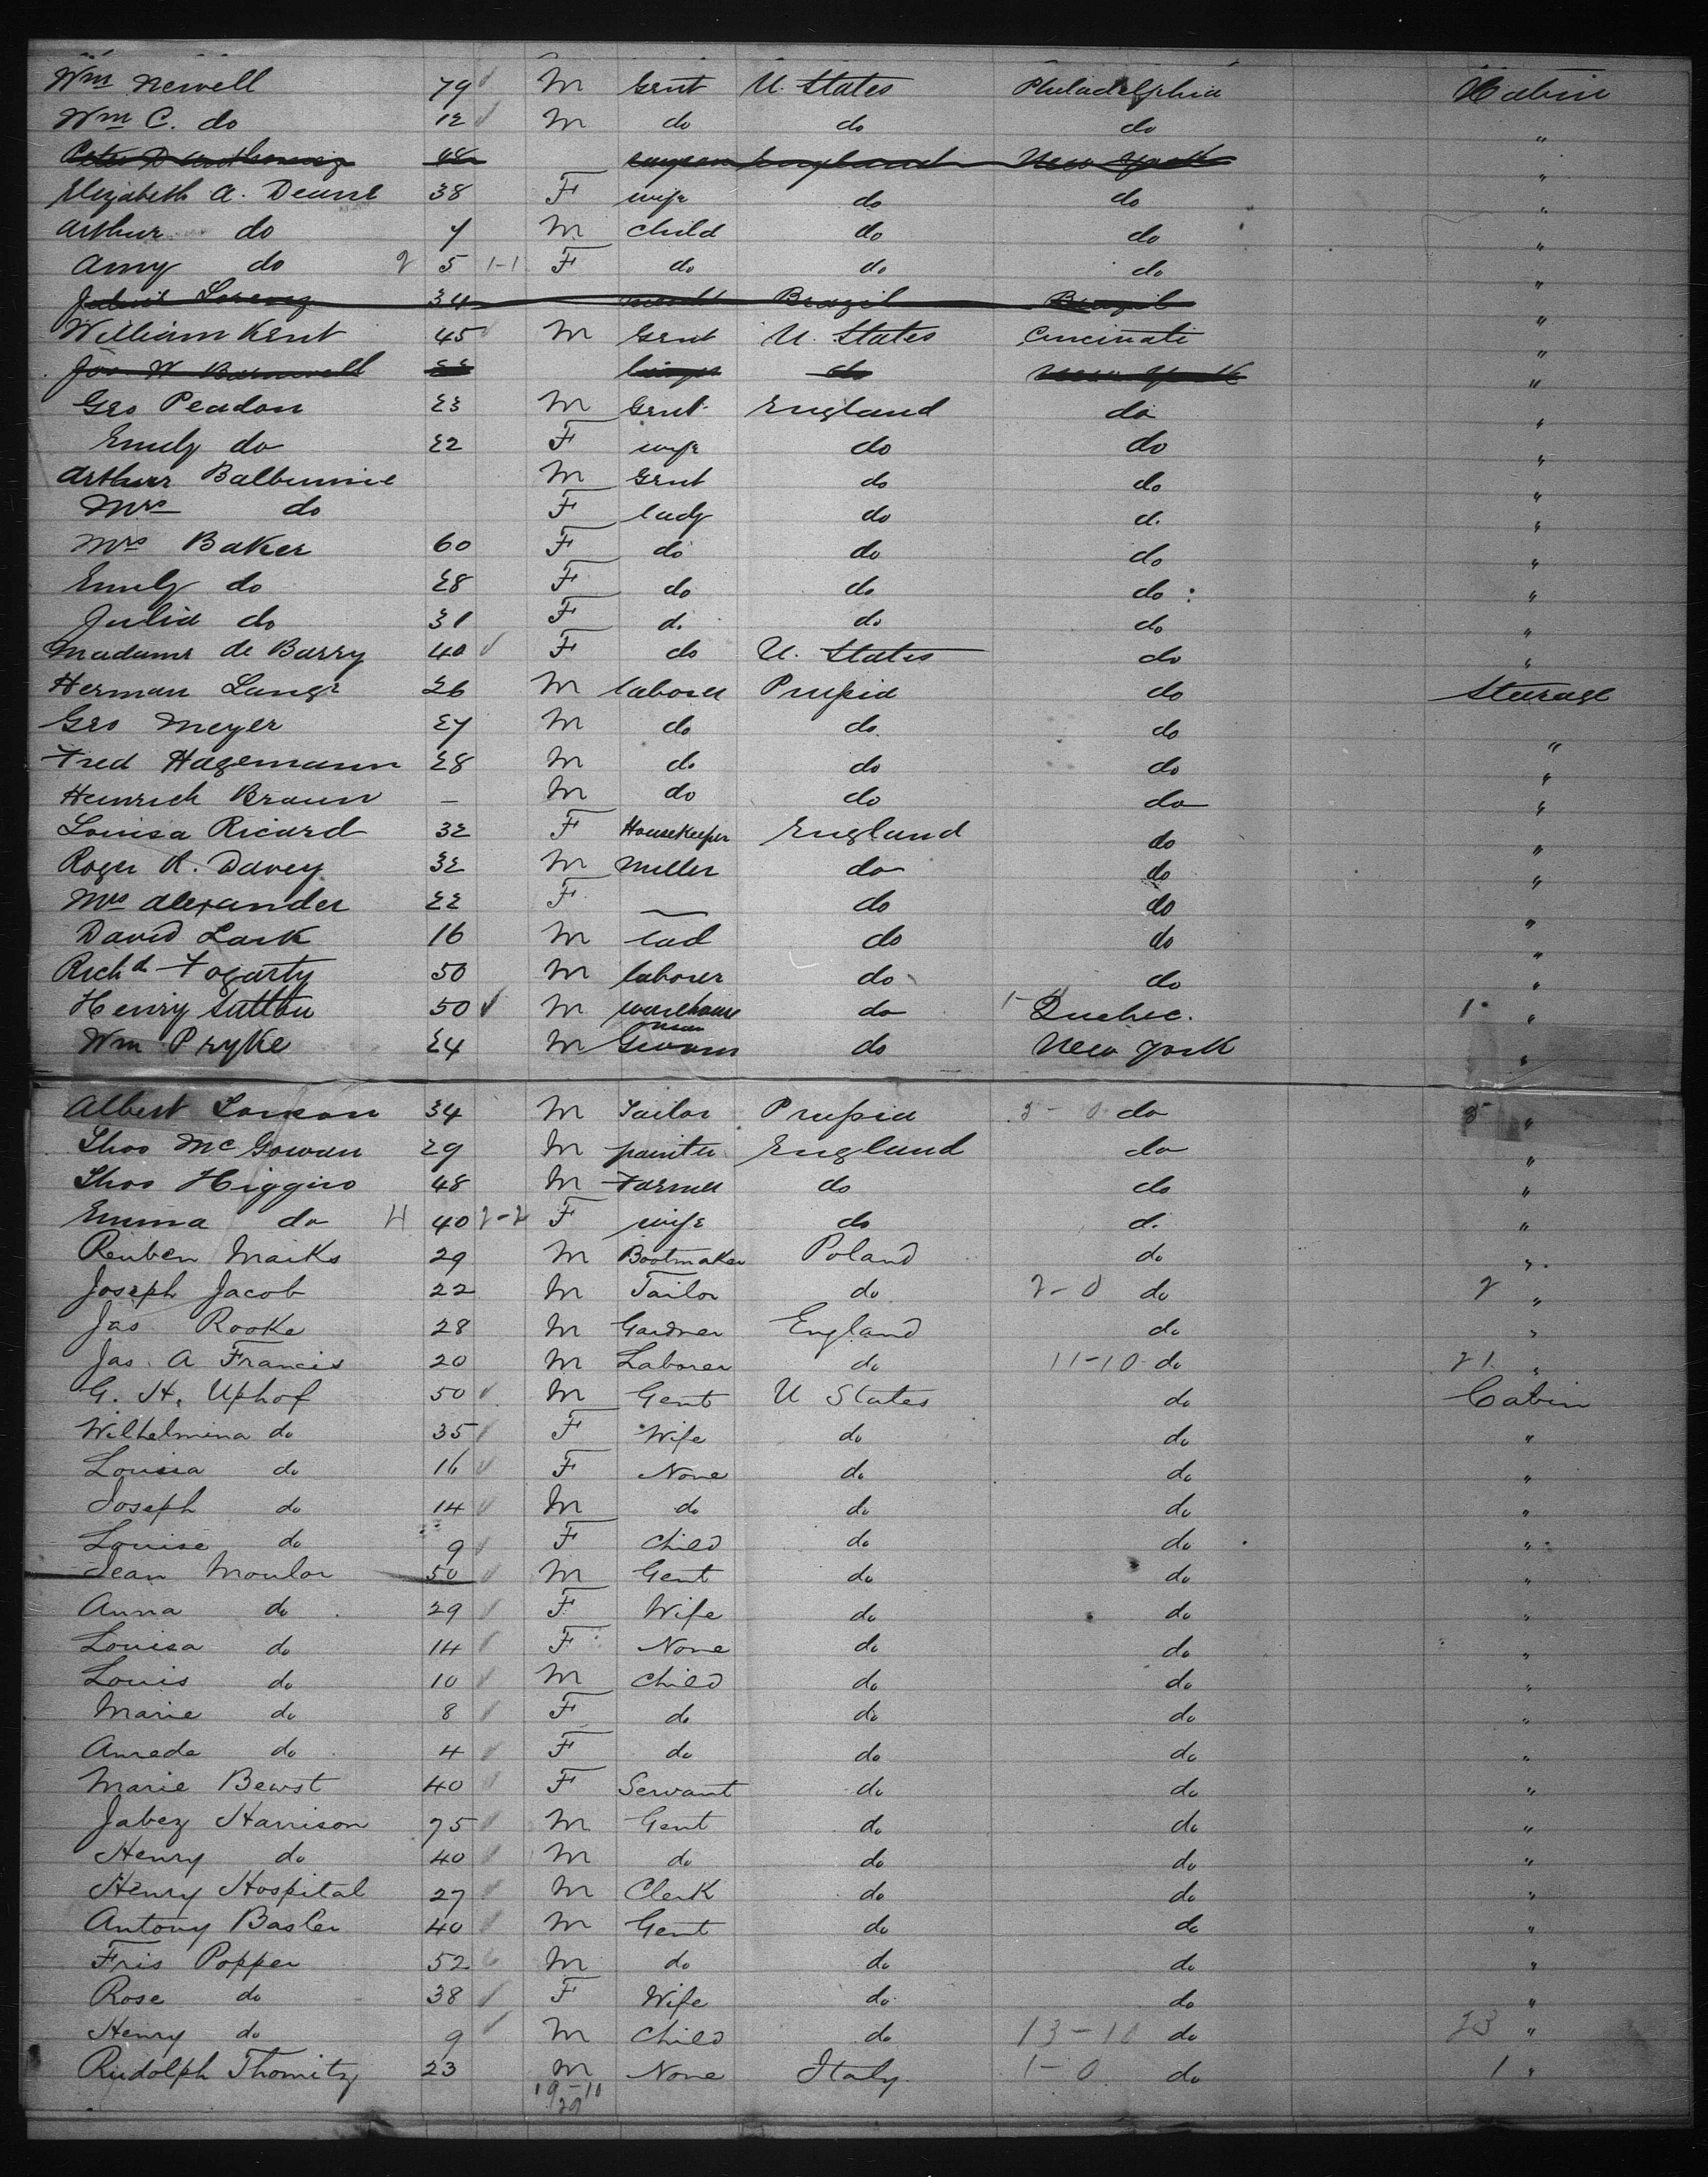 Wm Newell 79 M Gent U. States Philadelphia Cabin
Wm C. do 12 M do do do "
England New York "
Elizabeth A. Deane 38 F wife do do "
Arthur do 7 M child do do "
Amy do 2 5 1-1 F do do do "
34 Brazil Brazil "
William Kent 45 M Gent U. States Cincinati "
Jos W Barnwell 22 do New York "
Geo Peadon 23 M Gent England do "
Emily do 22 F wife do do "
Arthur Balbirnie M Gent do do "
Mrs do F lady do d. "
Mrs Baker 60 F do do do "
Emily do 28 F do do do "
Julia do 31 F d. do do "
Madame de Barry 40 F do U. States do "
Herman Lange 26 M laborer Prussia do Steerage
Geo Meyer 27 M do do do "
Fred Hagemann 28 M do do do "
Heinrich Braun – M do do do "
Louisa Ricard 32 F Housekeeper England do "
Roger R. Davey 32 M Miller do do "
Mrs Alexander 22 F — do do "
David Lark 16 M lad do do "
Richd Fogarty 50 M laborer do do "
Henry Sutton 50 M warehouse man do 1- Quebec. 1 "
Wm Pryke 24 M do New York "
Albert 34 M Tailor Prussia 3-0 do 3 "
Thos McGowan 29 M painter England do "
Thos Higgins 48 M Farmer do do "
Emma do H 40 2-2 F wife do d. "
Reuben Marks 29 M Bootmaker Poland do "
Joseph Jacob 22 M Tailor do 2-0 do 2 "
Jas Rooke 28 M Gardner England do "
Jas. A Francis 20 M Laborer do 11-10 do 21 "
G. H. Uphof 50 M Gent U States do Cabin
Wilhelmina do 35 F Wife do do "
Louisa do 16 F None do do "
Joseph do 14 M do do do "
Louise do 9 F Child do do "
Jean Moulor 50 M Gent do do "
Anna do 29 F Wife do do "
Louisa do 14 F None do do "
Louis do 10 M Child do do "
Marie do 8 F do do do "
Amede do 4 F do do do "
Marie Bewst 40 F Servant do do "
Jabez Harrison 75 M Gent do do "
Henry do 40 M do do do "
Henry Hospital 27 M Clerk do do "
Antony Basler 40 M Gent do do "
Fris Popper 52 M do do do "
Rose do 38 F Wife do do "
Henry do 9 M Child do 13-10 do 23 "
Rudolph Thomitz 23 M None Italy 1-0 do 1 "
19-10
29